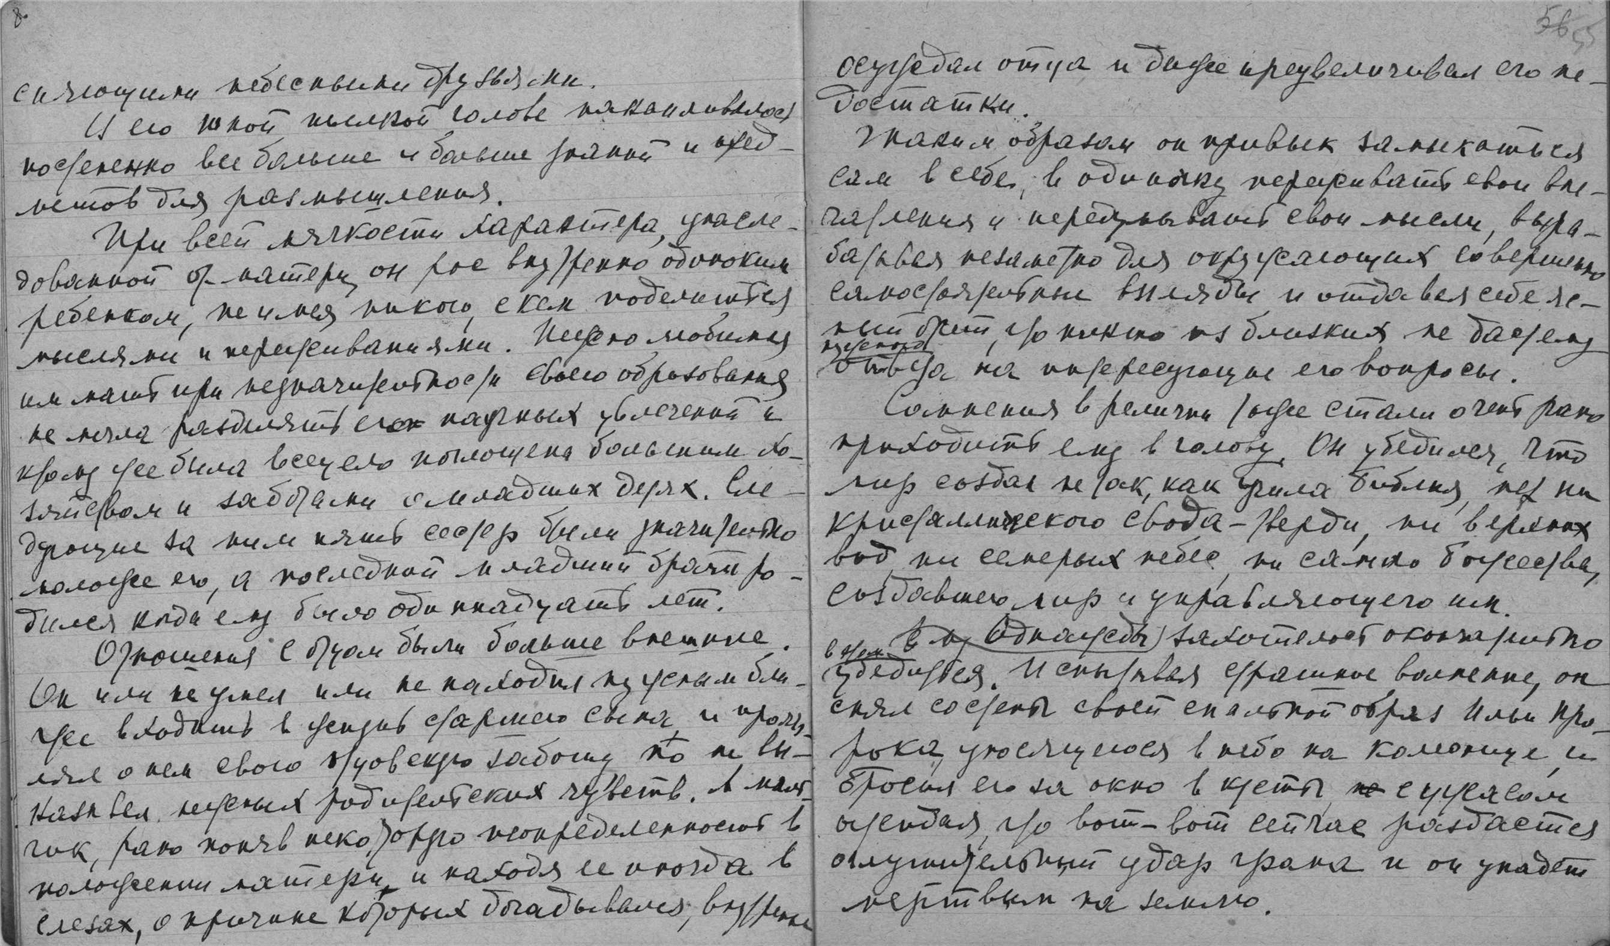 8.
сияющими небесными друзьями.
И его юной пылкой голове накапливалось
постепенно все больше и больше знаний и пред-
метов для размышления.
При всей мягкости характера, унасле-
дованной от матери, он рос внутренно одиноким
ребенком, не имея никого, с кем поделиться
мыслями и переживаниями. Нежно любимая
им мать при незначительности своего образования
не могла разделять его научных увлечений и
кроме уже была всецело поглощена большим хо-
зяйством и заботами о младших детях. Сле-
дующие за ним пять сестер были значительно
моложе его, а последний младший брат ро-
дился когда ему было одиннадцать лет.
Отношения с отцом были больше внешние.
Он или не умел или не находил нужным бли-
же входить в жизнь старшего сына и прояв-
лял о нем свою отцовскую заботу но не вы-
казывал нежных родительских чувств. А маль-
чик, рано поняв некоторую неопределенность в
положении матери и находя ее иногда в
слезах, о причине которых догадывался, внутренне
56 55
осуждал отца и даже преувеличивал его не-
достатки.
Таким образом он привык замыкаться
сам в себе, в одиночку переживать свои впе-
чатления и передумывать свои мысли, выра-
батывая незаметно для окружающих совершенно
самостоятельные взгляды и отдавая себе яс-
ный отчет, что никто из близких не даст ему
нужного
ответа на интересующие его вопросы.
Сомнения в религии тоже стали очень рано
приходить ему в голову. Он убедился, что
мир создан не так, как учила библия, нет ни
кристаллического свода - тверди, ни верхних
вод, ни семерых небес, ни самого божества,
создавшего мир и управляющего им.
Ему однажды захотелось окончательно
в этом
убедиться. Испытывая страшное волнение, он
снял со стены своей спальной образ Ильи про-
рока, уносящегося в небо на колеснице, и
бросил его за окно в кусты, с ужасом
ожидая, что вот-вот сейчас раздастся
оглушительный удар грома и он упадет
мертвым на землю.